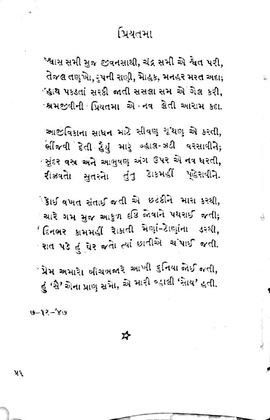 પ્રિયતમા
શ્વાસ સમી મુજ જીવનસાથી, ચંદ્ર સમી એ શ્વેત પરી,
તેજલ તણખો, રૂપની રાણી, મોહક, મનહર મસ્ત અદા;
હાથ પકડતાં સરકી જાતી સસલા સમ એ ગેલ કરી,
શ્રમજીવીની પ્રિયતમા એ નવ લેતી આરામ કદા.
આજીવિકાના સાધન માટે સીવણ ગૂંથણ એ કરતી,
ભીંજવી દેતી હૈયું મારું વ્હાલ-ઝડી વરસાવીને;
સુંદર વસ્ત્ર અને આભુષણ અંગ ઉપર એ નવ ધરતી,
રીઝવતો સુતરનો તુંતુ ટાકમહીં પહેરાવીને.
કોઈ વખત સંતાઈ જતી એ છટકીને મારા કરથી,
ચારે ગમ મુજ આકુળ દૃષ્ટિ જોવાને પથરાઈ જતી;
દિનભર કામમહીં રોકાતી મેણાં-ટોણાંના ડરથી,
રાત પડે હું ઘેર જતો ત્યાં છાતીએ ચંપાઈ જતી.
પ્રેમ અમારો બીચબજારે આખી દુનિયા જોઈ જતી,
હું 'સૈ' એના પ્રાણ સમો, એ મારી વ્હાલી 'સોય' હતી.
૭-૧૨-'૪૭
૫૬